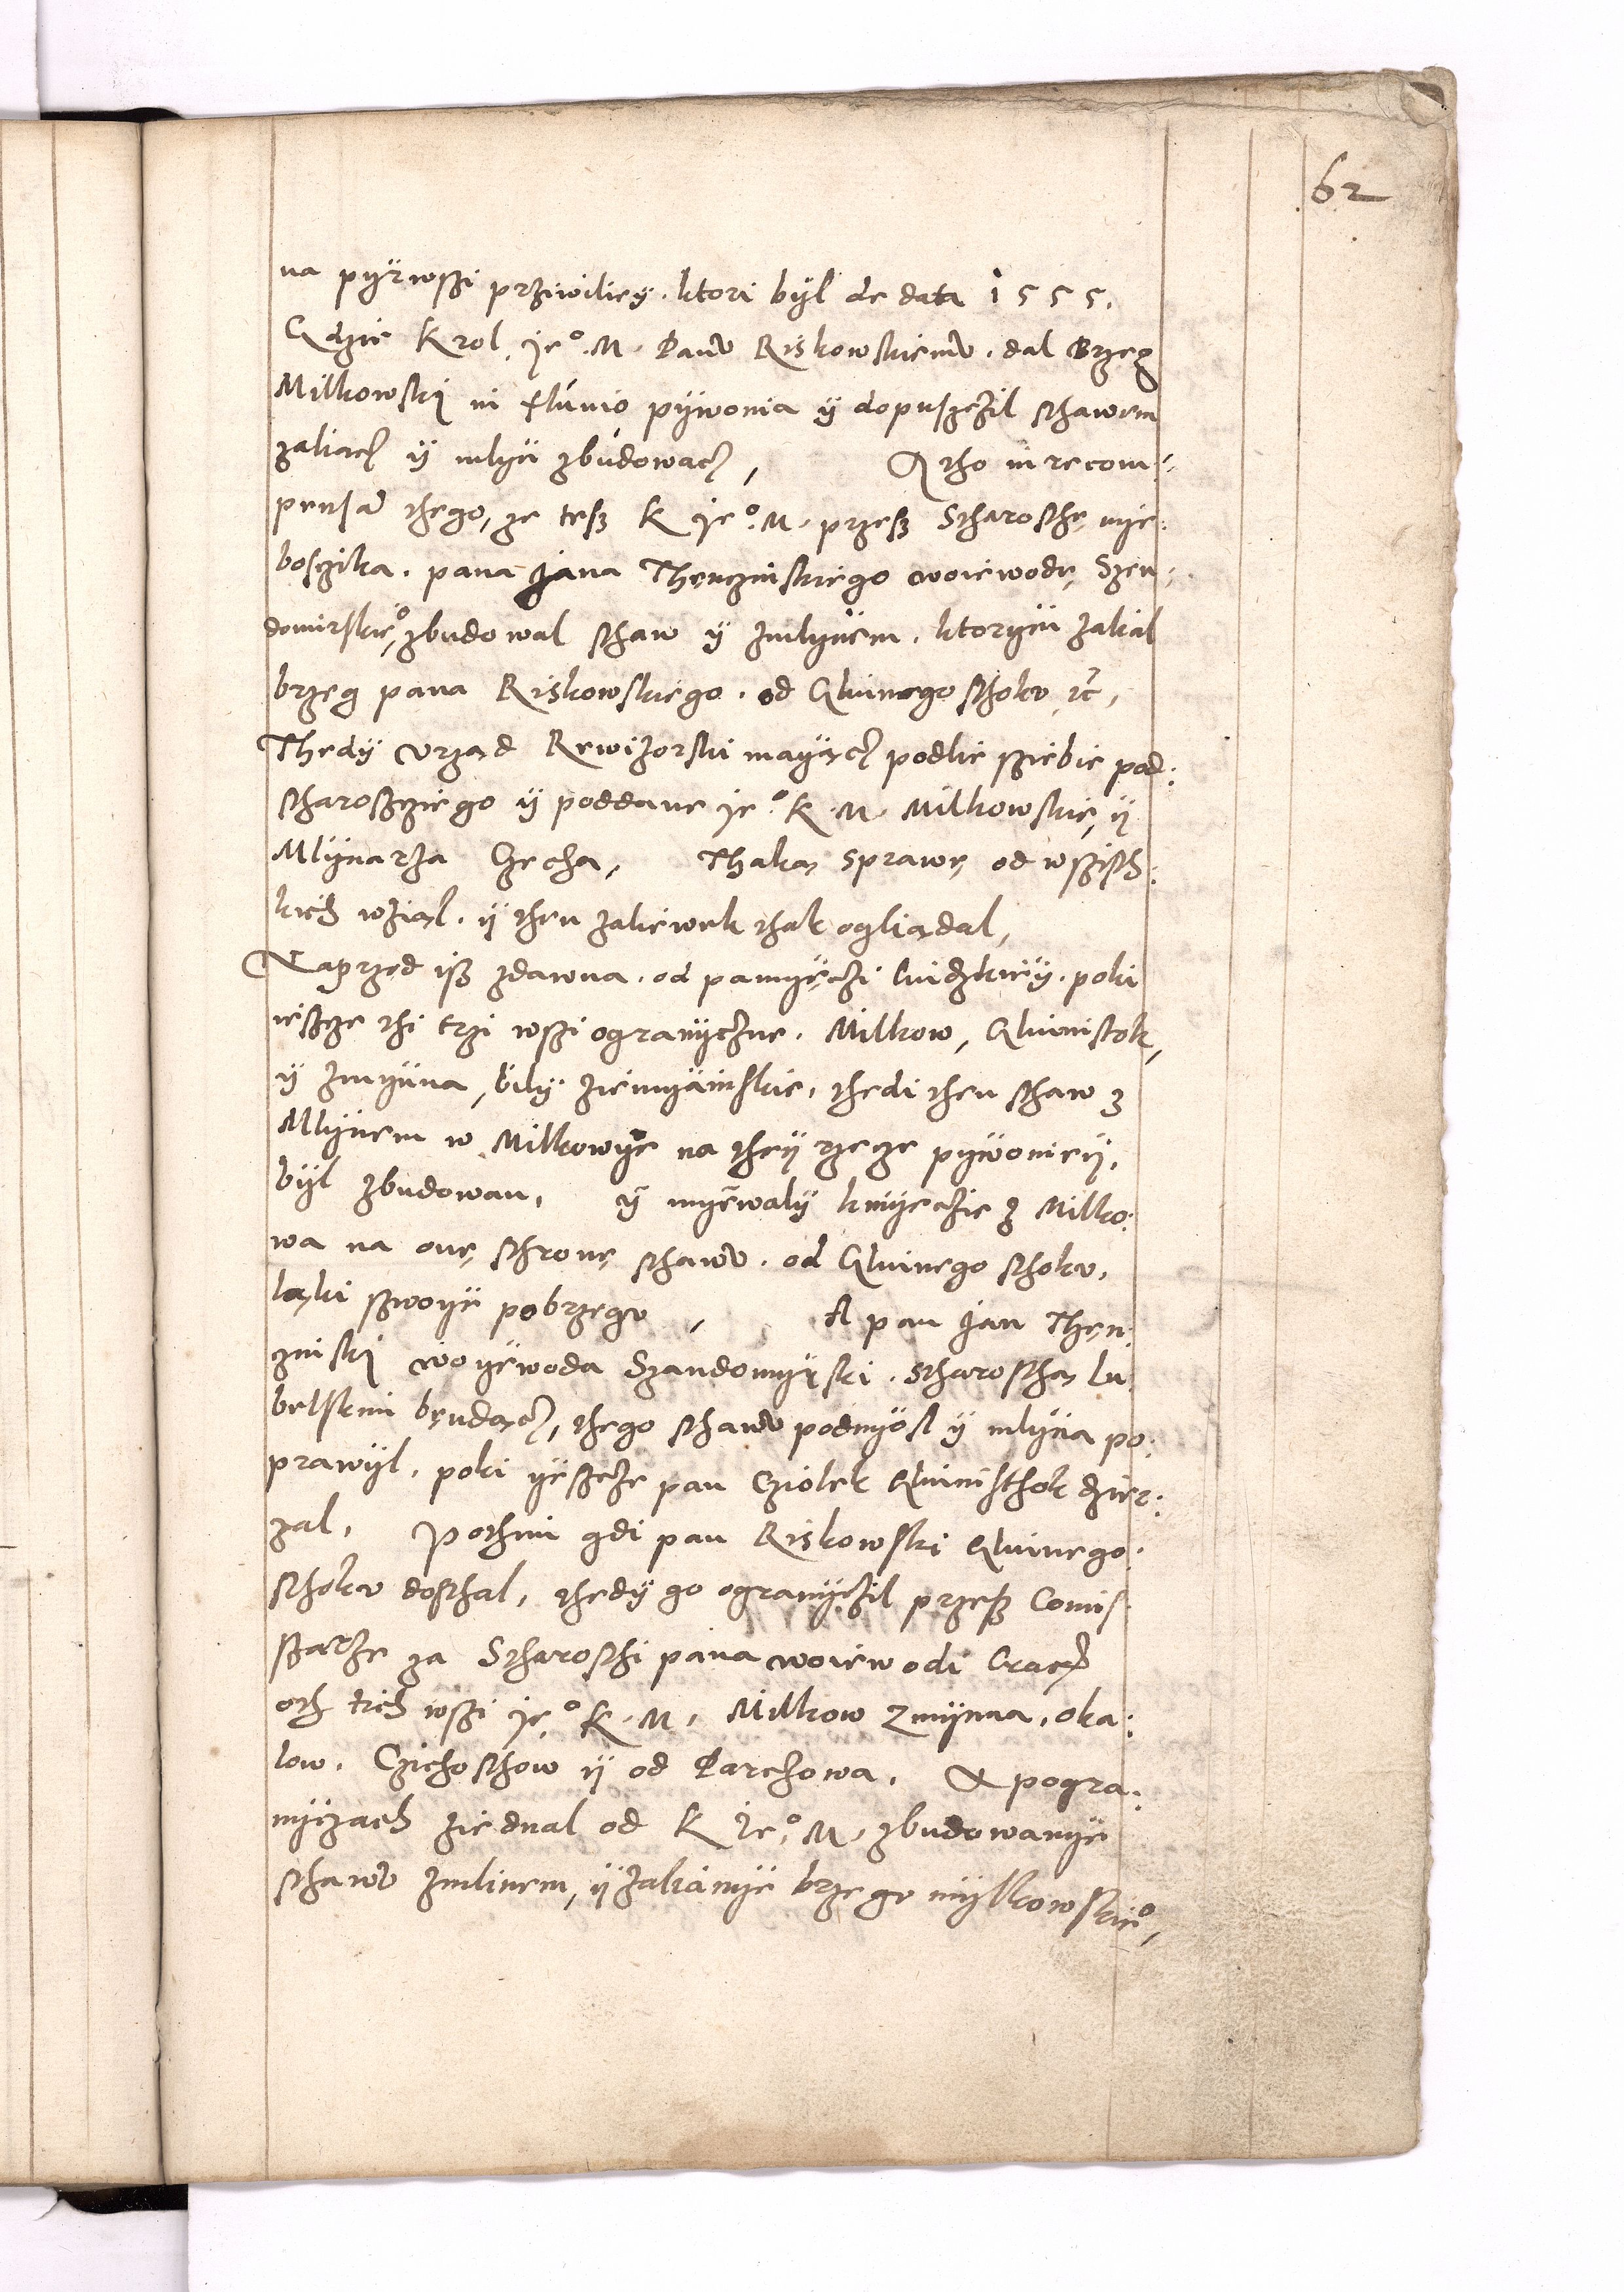 62
na pyrwszi prziwiliey. ktori byl de data 1555.
Gdzie Krol. Je°. M. Panu Riskowskiemu. dal Brzeg
Milkowski in fluuio pywonia y dopusczil sthawem
zaliacz y mlyn zbudowacz, A tho in recom:
pensam thego, ze tesz K Je°. M. przesz Stharosthę nye:
bosczika. pana Jana Thęnczinskiego woiewodę Szen:
domirskie°, zbudowal sthaw y zmlynem. ktorym zalial
brzeg pana Riskowskiego. od Gluinego sthoku etc,
Thedy vrząd Rewizorski mayącz podlie sziebie pod:
stharosczie go y poddane Je° K. M. Milkowskie, y
Mlynarza Czecha, Thaką sprawę od wszisth:
kich wziąl. y then zaliewek thak ogliądal,
Naprzod isz zdawna. od pamyęczi ludzkiey. poki
iescze thi trzi wszi ogranyczne. Milkow, Gluinistok,
y zmyina, bily ziemyainskie, thedi then sthaw z
Mlynem w Milkowye na they rzecze pywoniey,
byl zbudowan, y myewaly kmyeczie z Milko:
wa na onę sthronę sthawu. od Gluinego sthoku,
ląki szwoye pobrzegu, A pan Jan Thęn:
czinski woyewoda Szandomyrski. Stharosthą lu
belskim będącz, thego sthawu podnyosl y mlyna po:
prawyl. poki yescze pan Cziolek Gluinisthok dzier:
zal, Pothim gdi pan Riskowski Gluinego:
sthoku dosthal, thedy go ogranyczil przesz Comis
szarze za Stharosthi pana woiewodi Crac
oth tich wszi Je° K. M. Milkow Zmynna, oka:
low. Czichosthow y od Parchowa. A pogra:
nyczach ziednal od K Je°. M. zbudowanye
sthawu zmlinem, y zalianye brzegu mylkowskie°,